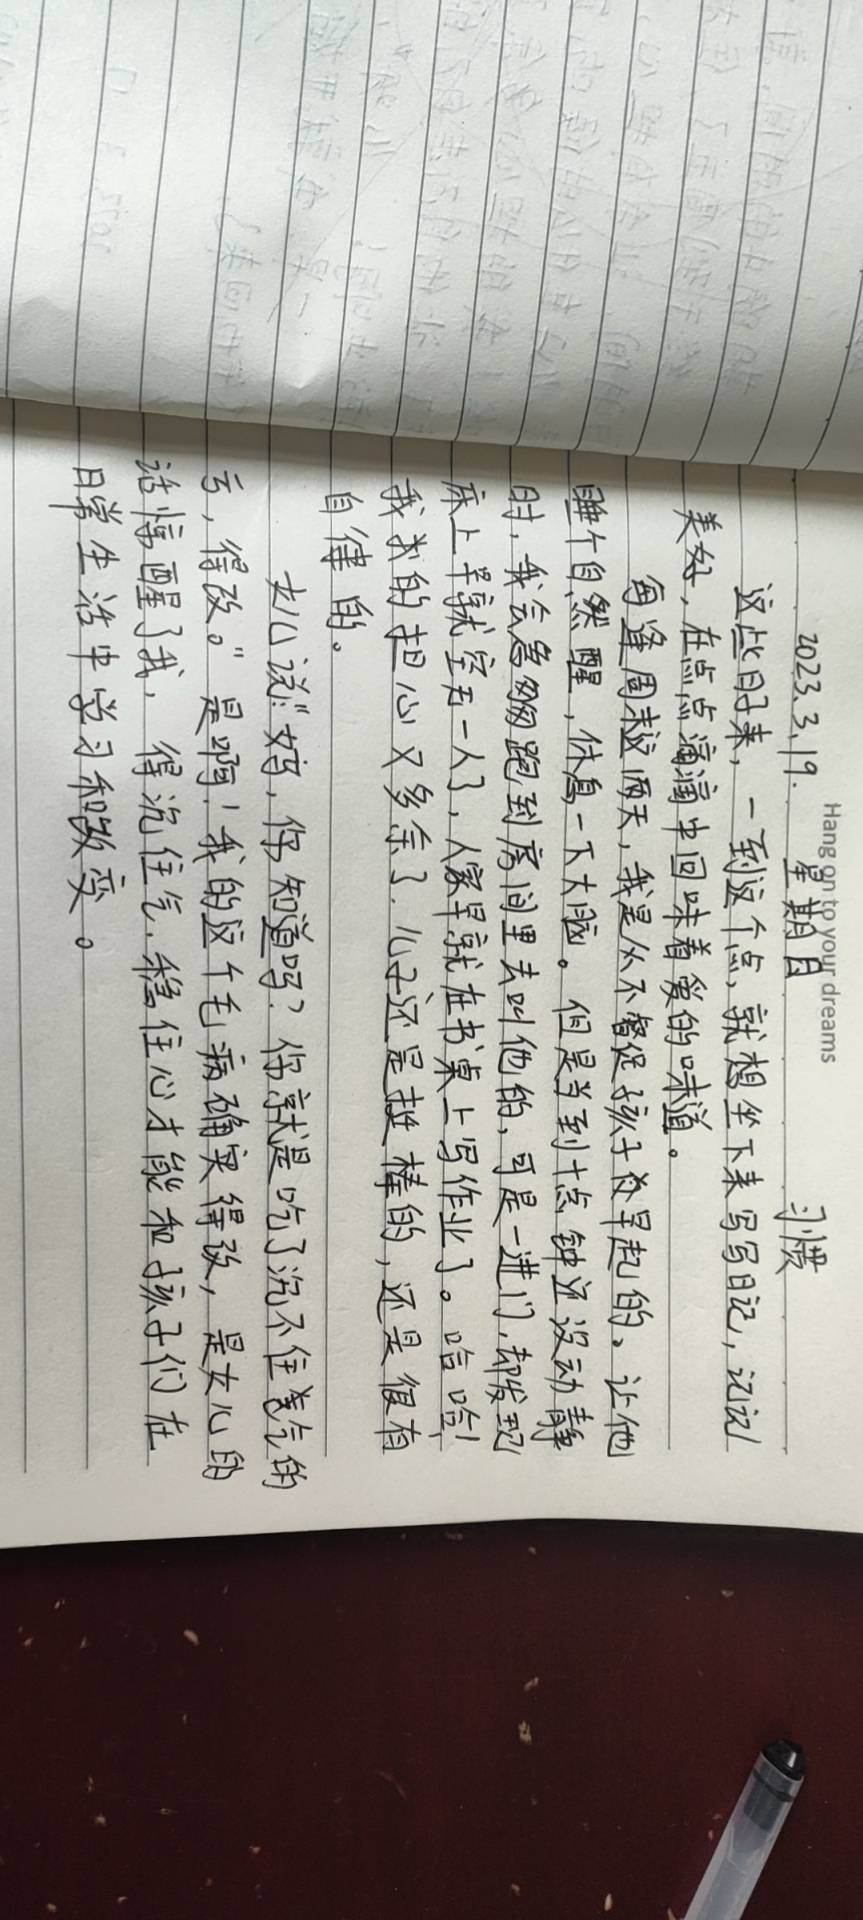 Hang on to your dreams
2023.3.19. 星期日 习惯
这些日子来，一到这个点，就想坐下来写写日记，记记
美好，在点点滴滴中回味着爱的味道。
每逢周末这两天，我是从不督促孩子们早起的。让他
睡个自然醒，休息一下大脑。但是当到十点钟还没动静
时，我会急匆匆跑到房间里去叫他的，可是一进门，却发现
床上早就空无一人了，人家早就在书桌上写作业了。哈哈！
我的担心又多余了，儿子还是挺棒的，还是很有
自律的。
女儿说：“妈，你知道吗？你就是吃了沉不住气的
亏，得改。”是啊！我的这个毛病确实得改，是女儿的
话惊醒了我，得沉住气，稳住心才能和孩子们在
日常生活中学习和改变。